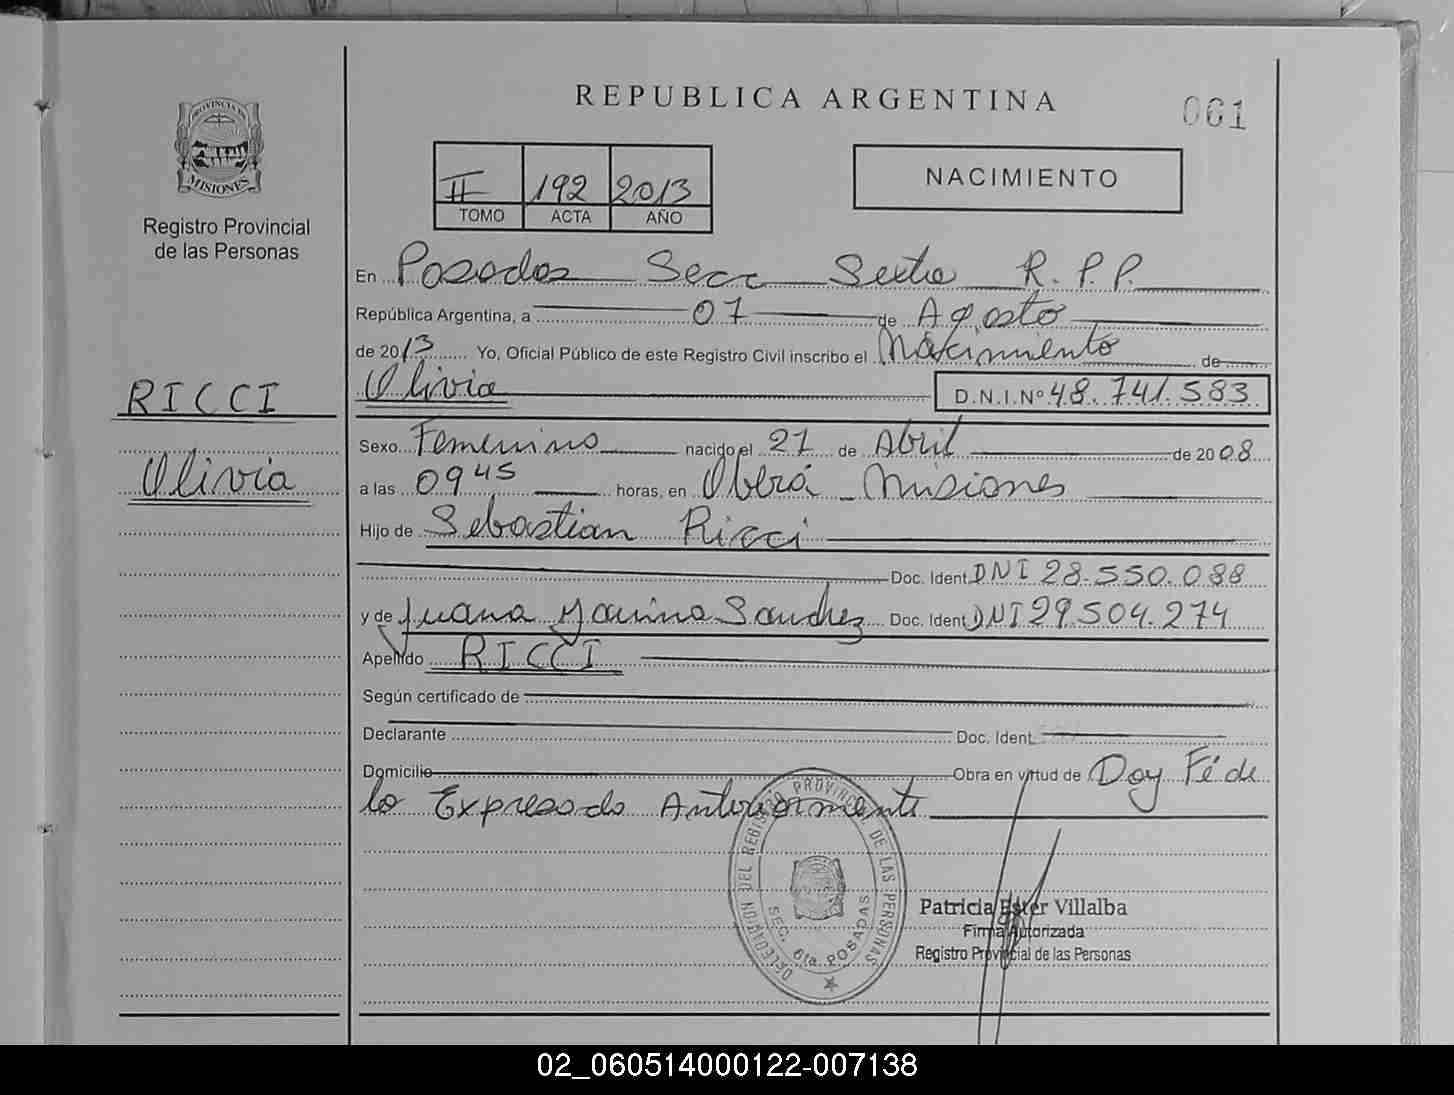 REPUBLICA ARGENTINA
061
PROVINCIA DE
MISIONES
Registro Provincial
de las Personas
II 192 2013
TOMO ACTA AÑO
NACIMIENTO
En Posadas Secc Sexta R.P.P.
República Argentina, a 07 de Agosto
de 2013 Yo, Oficial Público de este Registro Civil inscribo el Nacimiento de
Olivia D.N.I.Nº 48.741.583
RICCI
Olivia
Sexo Femenino nacido el 27 de Abril de 2008
a las 09 45 horas, en Oberá - Misiones
Hijo de Sebastian Ricci
Doc. Ident. DNI 28.550.088
y de Juana Yanina Sanchez Doc. Ident. DNI 29.504.274
Apellido RICCI
Según certificado de
Declarante Doc. Ident.
Domicilio Obra en virtud de Doy Fé de
lo Expresado Anteriormente
DELEGACION DEL REGISTRO PROVINCIAL DE LAS PERSONAS
SEC. 6ta. POSADAS
Patricia Ester Villalba
Firma Autorizada
Registro Provincial de las Personas
02_060514000122-007138